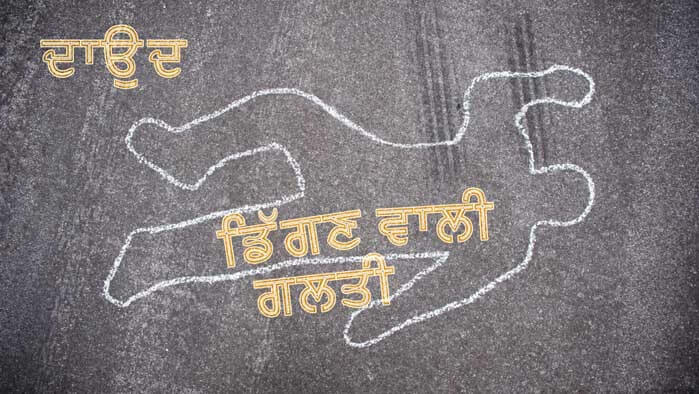 ਦਾਊਦ
ਡਿੱਗਣ ਵਾਲੀ
ਗਲਤੀ